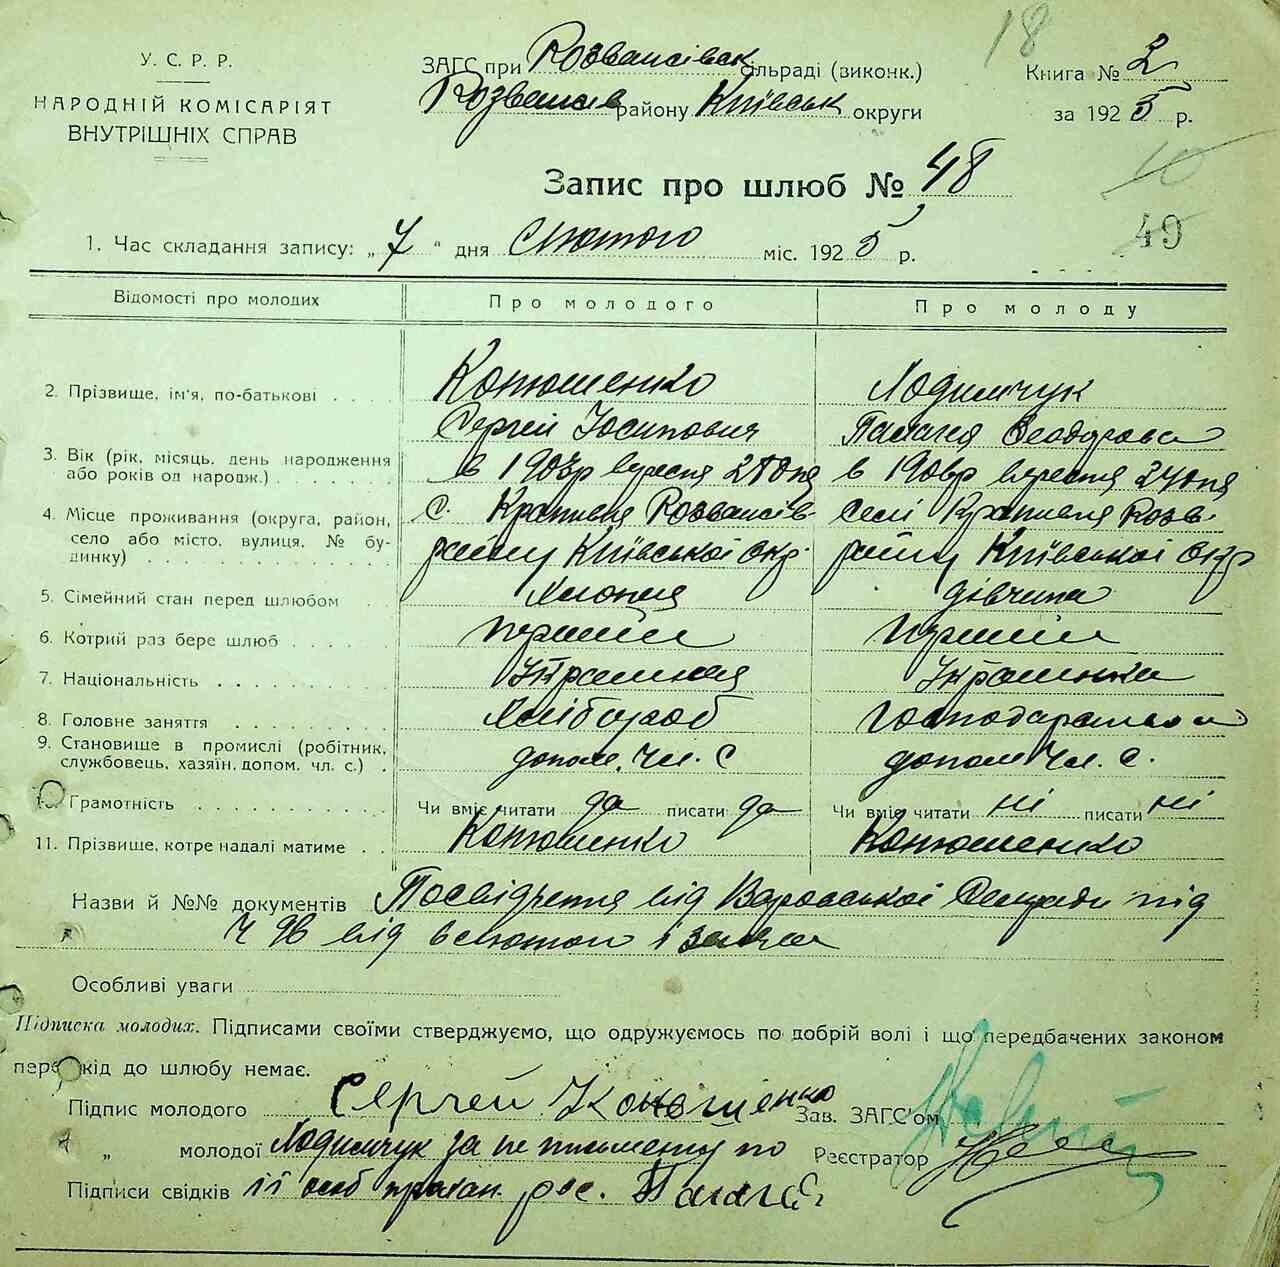 18
У. С. Р. Р.
НАРОДНІЙ КОМІСАРІЯТ
ВНУТРІШНІХ СПРАВ
ЗАГС при Розважівськ сільраді (виконк.)
Розважів району Київськ округи
Книга № 2
за 1925 р.
Запис про шлюб № 48
10
49
1. Час складання запису: „7" дня Лютого міс. 1925 р.
Відомості про молодих Про молодого Про молоду
2. Прізвище, ім'я, по-батькові . . . . Конюшенко Ходимчук
Сергій Йосипович Палагея Феодорова
3. Вік (рік, місяць, день народження або років од народж.) в 1903р вересня 25 дня в 190 р вересня 24 дня
4. Місце проживання (округа, район, село або місто, вулиця, № будинку) с. Крапивня Розважів- Селі Крапивня Розв.
району Київської окр. району Київської окр
5. Сімейний стан перед шлюбом Хлопця дівчина
6. Котрий раз бере шлюб перший перший
7. Національність Українка
8. Головне заняття Хлібороб Господарська
9. Становище в промислі (робітник, службовець, хазяїн, допом. чл. с.) допом. Чл. С допом Чл. С.
10. Грамотність Чи вміє читати да писати да Чи вміє читати ні писати ні
11. Прізвище, котре надалі матиме Конюшенко Конюшенко
Назви й №№ документів Посвідчення від Сельради під
Ч 96 від лютого і
Особливі уваги
Підписка молодих. Підписами своїми стверджуємо, що одружуємось по добрій волі і що передбачених законом
перешкід до шлюбу немає.
Підпис молодого Сергей Конюшенко Зав. ЗАГС'ом
„ молодої Ходимчук за не письмену по Реєстратор
Підписи свідків її особ прохан. рос.